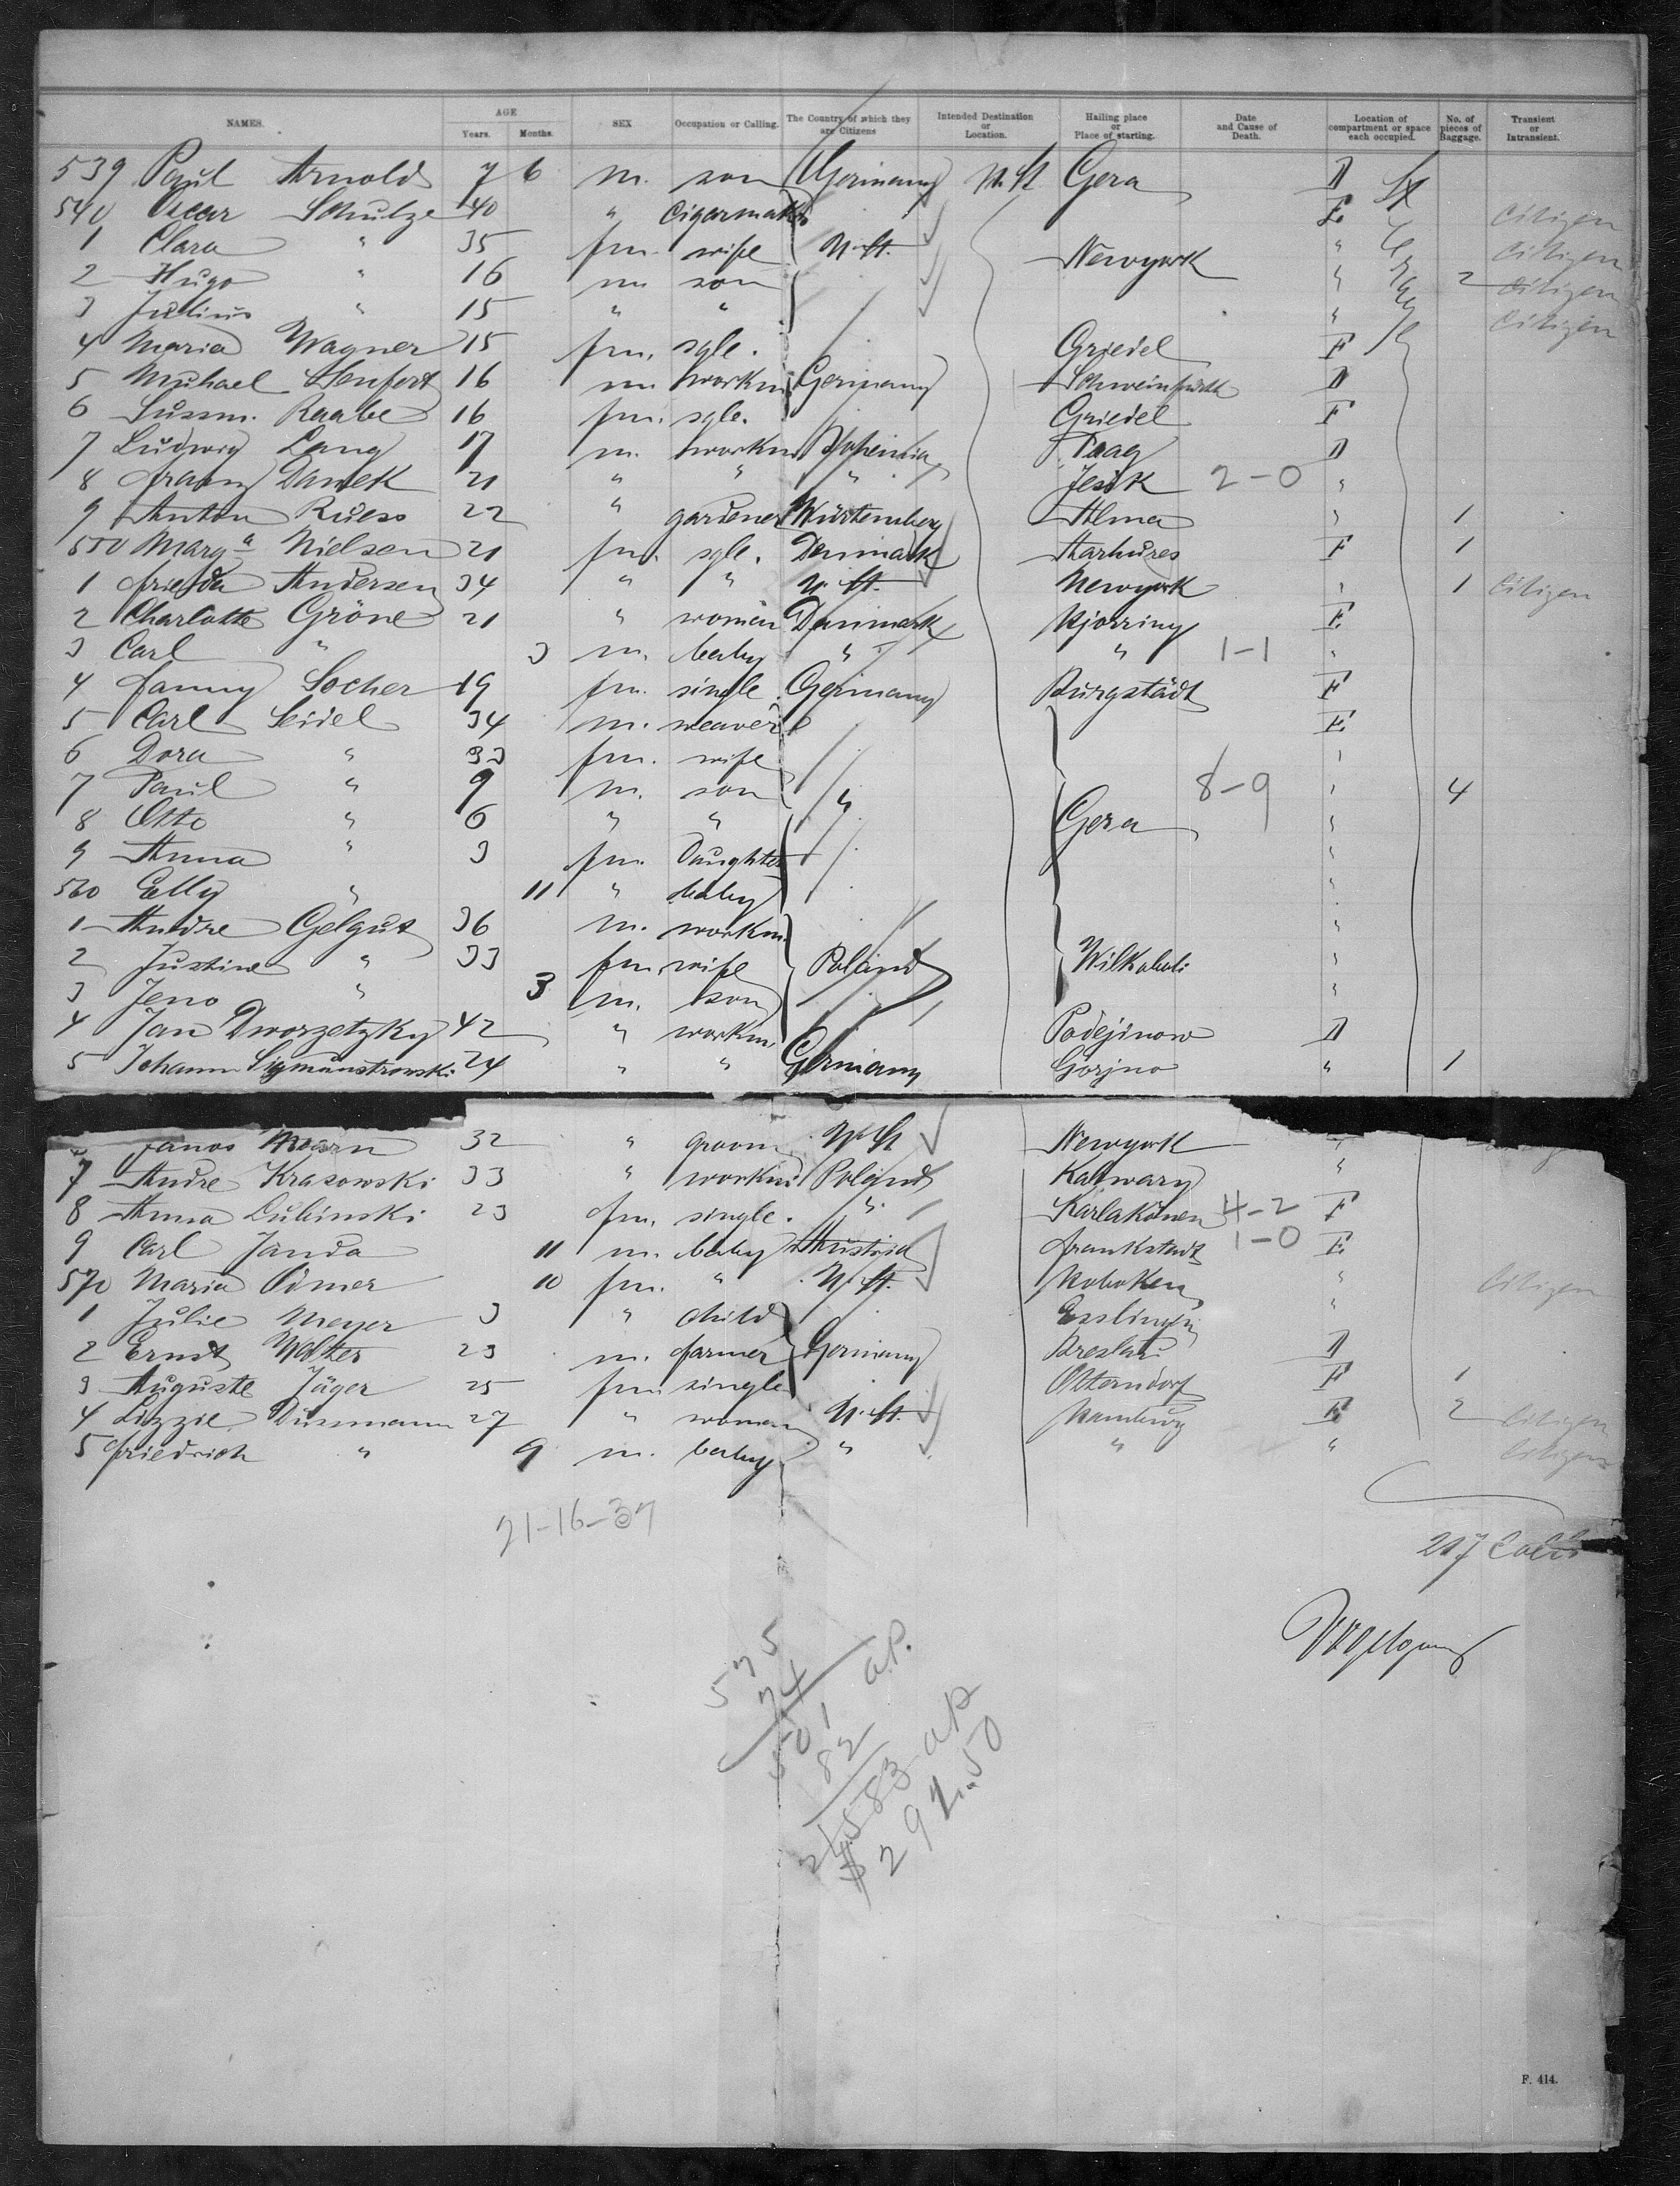 NAMES. AGE Years. Months. SEX Occupation or Calling. The Country of which they are Citizens Intended Destination or Location. Hailing place or Place of starting. Date and Cause of Death. Location of compartment or space each occupied. No. of pieces of Baggage. Transient or Intransient.
539 Paul Arnold 7 6 m. son Germany U. St. Gera D St
540 Oscar Schulze 40 " Cigarmaker E Citizen
1 Clara " 35 fm. wife U. St. Newyork " Citizen
2 Hugo " 16 m son " 2 Citizen
3 Julius " 15 " " " Citizen
4 Maria Wagner 15 fm. sgle. Griedel F
5 Michael Senfert 16 m. workm Germany Schweinfurth D
6 Sussm. Raabe 16 fm. sgle. Griedel F
7 Ludwig Lang 17 m. workm Bohemia Praag D
8 Franz Danek 21 " " " Jesik 2-0 "
9 Anton Ruess 22 " gardener Würtemberg Alma " 1
550 Marga Nielsen 21 fm. sgle. Denmark Aarhues F 1
1 Frieda Andersen 34 " " U. St. Newyork " 1 Citizen
2 Charlotte Gröne 21 " woman Danmark Hjorring E
3 Carl " 3 m. baby " " 1-1 "
4 Fanny Socher 19 fm. single Germany Burgstädt F
5 Carl Seidel 34 m. weaver E
6 Dora " 33 fm. wife "
7 Paul " 9 m. son " 8-9 " 4
8 Otto " 6 " " Gera "
9 Anna " 3 fm. Daughter "
560 Elly " 11 " baby "
1 Andre Gelgut 36 m. workm "
2 Justine " 33 fm wife Poland "
3 Jeno " 3 m. son "
4 Jan Dworzetzky 42 " workm Podejinow D
5 Johann Sigmunstrowski 24 " " Germany Gorjno " 1
Janos 32 " groom U. St Newyork "
7 Andre Krasowski 33 " workm Poland Kalwary "
8 Anna Lubinski 23 fm. single " 4-2 F
9 Carl Janda 11 m. baby Austria Frankstadt 1-0 E
570 Maria 10 fm. " U. St. Hoboken " Citizen
1 Julie Meyer 3 " child Esslingen "
2 Ernst Walter 23 m. farmer Germany Breslau D
3 Auguste Jäger 25 fm single Otterndorf F 1
4 Lizzie Düssmann 27 " woman U. St. Hamburg E 2 Citizen
5 Friedrich " 9 m. baby " " " Citizen
21-16-37
217 Colis
575
74
501 a.P.
82
583 ap
F. 414.